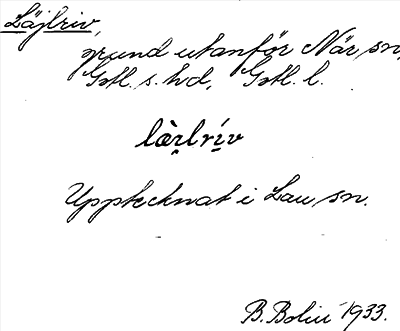 Läjlriv,
grund utanför När sn,
Gotl. s. hd, Gotl. l.
là̀i̯lrí̯v
Upptecknat i Lau sn.
B. Bolin 1933.